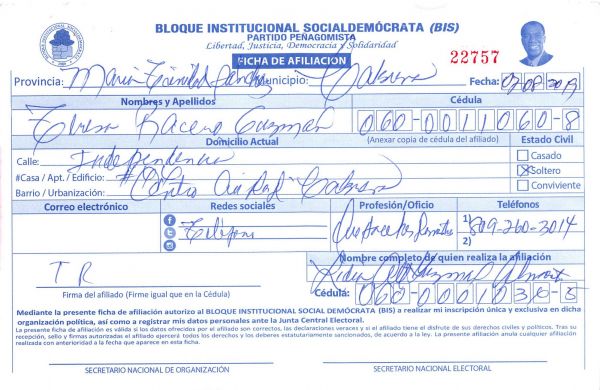 BLOQUE INSTITUCIONAL SOCIALDEMÓCRATA (BIS)
PARTIDO PEÑAGOMISTA
Libertad, Justicia, Democracia y Solidaridad
FICHA DE AFILIACION
22757
Provincia: Maria Trinidad Sanchez Municipio: Cabrera Fecha: 07/08/2019
Nombres y Apellidos Cédula
Teresa Guzman 060-0011060-8
Domicilio Actual (Anexar copia de cédula del afiliado) Estado Civil
Calle: Independencia
Casado
#Casa / Apt. / Edificio: #
Soltero
Barrio / Urbanización: Centro Cabrera
Conviviente
Correo electrónico Redes sociales Profesión/Oficio Teléfonos
Telefono
1) 809-260-3014
2)
Nombre completo de quien realiza la afiliación
T R
Guzman
Firma del afiliado (Firme igual que en la Cédula)
Cédula: 060-0001036-5
Mediante la presente ficha de afiliación autorizo al BLOQUE INSTITUCIONAL SOCIAL DEMÓCRATA (BIS) a realizar mi inscripción única y exclusiva en dicha
organización política, así como a registrar mis datos personales ante la Junta Central Electoral.
La presente ficha de afiliación es válida si los datos ofrecidos por el afiliado son correctos, las declaraciones veraces y si el afiliado tiene el disfrute de sus derechos civiles y políticos. Tras su
recepción, sello y firmas autorizadas el afiliado ejercerá todos los derechos y los deberes estatutariamente sancionados, de acuerdo a la ley. La presente afiliación anula cualquier afiliación
realizada con anterioridad a la fecha que aparece en esta ficha.
SECRETARIO NACIONAL DE ORGANIZACIÓN
SECRETARIO NACIONAL ELECTORAL